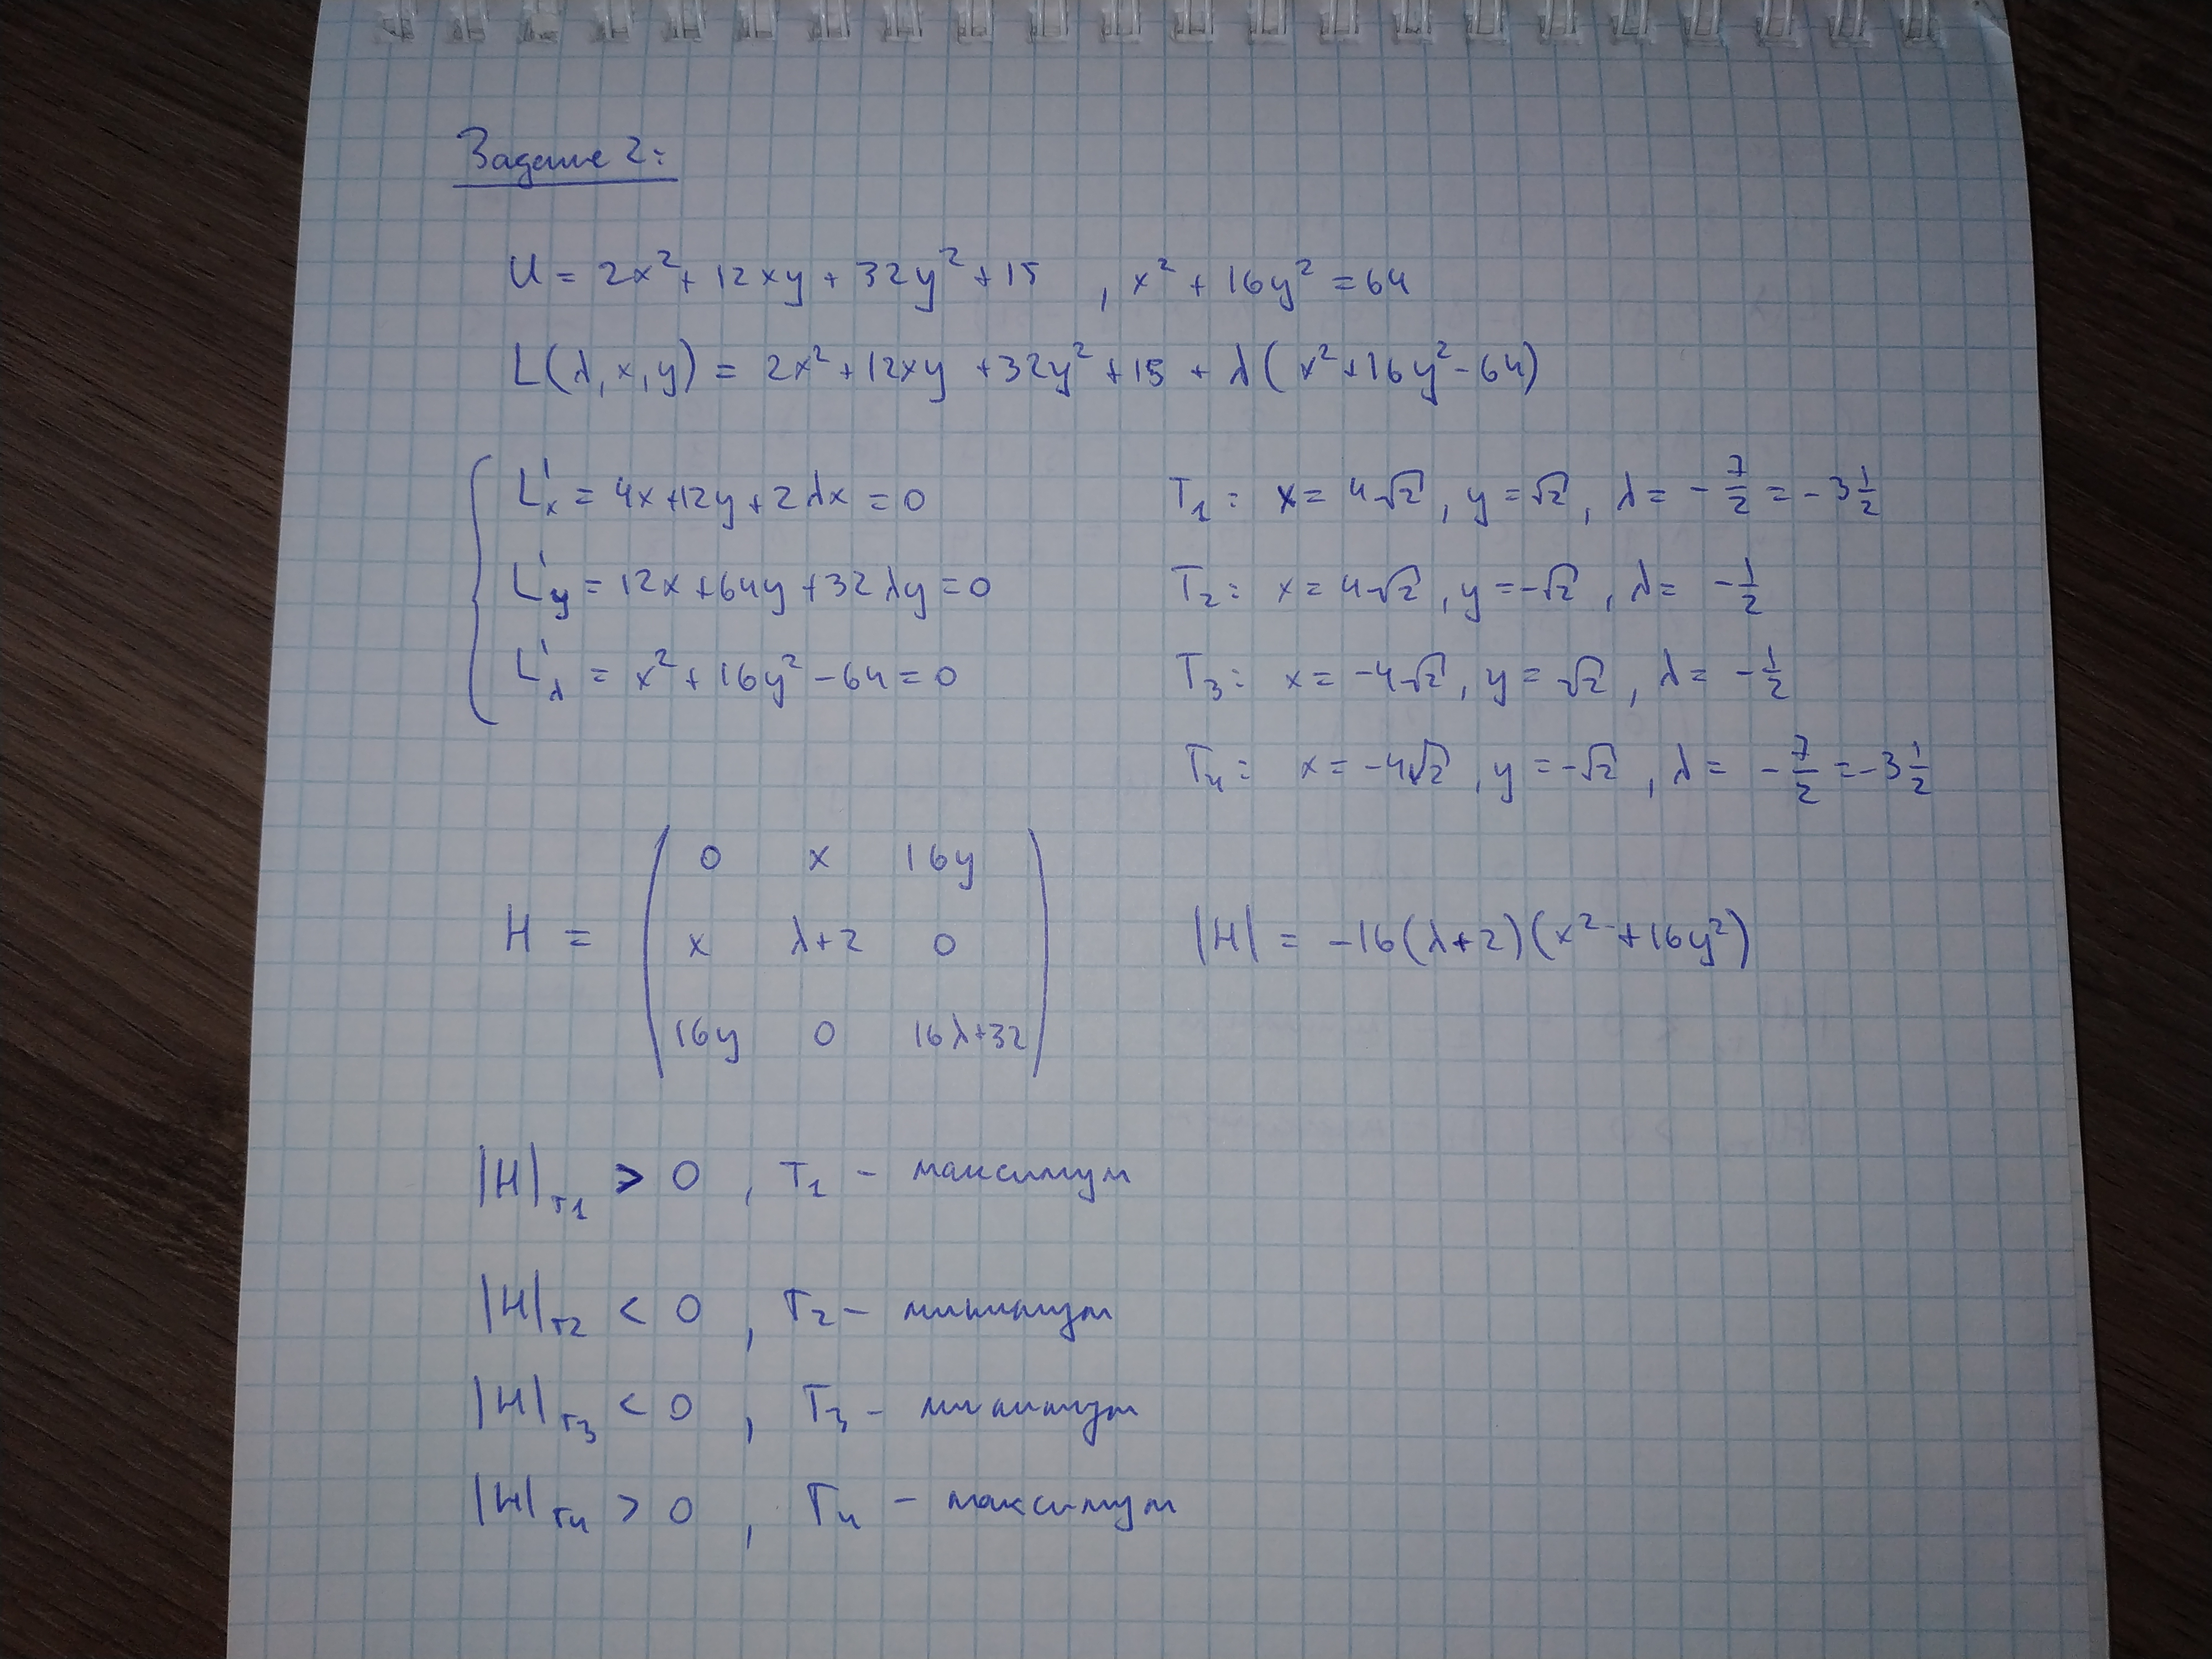 Задание 2:
U = 2x² + 12xy + 32y² + 15 , x² + 16y² = 64
L(λ, x, y) = 2x² + 12xy + 32y² + 15 + λ(x² + 16y² - 64)
L'x = 4x + 12y + 2λx = 0
L'y = 12x + 64y + 32λy = 0
L'λ = x² + 16y² - 64 = 0
T₁: x = 4√2, y = √2, λ = -7/2 = -3 1/2
T₂: x = 4√2, y = -√2, λ = -1/2
T₃: x = -4√2, y = √2, λ = -1/2
T₄: x = -4√2, y = -√2, λ = -7/2 = -3 1/2
0 x 16y
H = x λ+2 0
16y 0 16λ+32
|H| = -16(λ+2)(x² + 16y²)
|H|т₁ > 0 , T₁ - максимум
|H|т₂ < 0 , T₂ - минимум
|H|т₃ < 0 , T₃ - минимум
|H|т₄ > 0 , T₄ - максимум